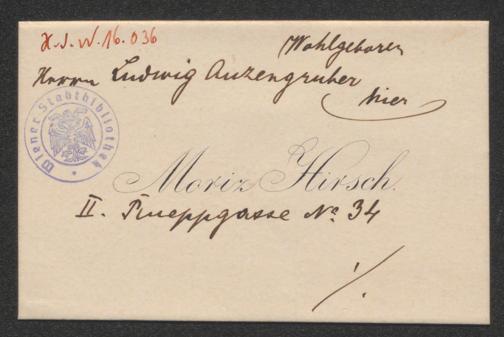 H. I. N. 16.036
Wohlgeboren
Herrn Ludwig Anzengruber
hier
Wiener Stadtbibliothek
Moriz Hirsch.
II. Trueppgasse No. 34